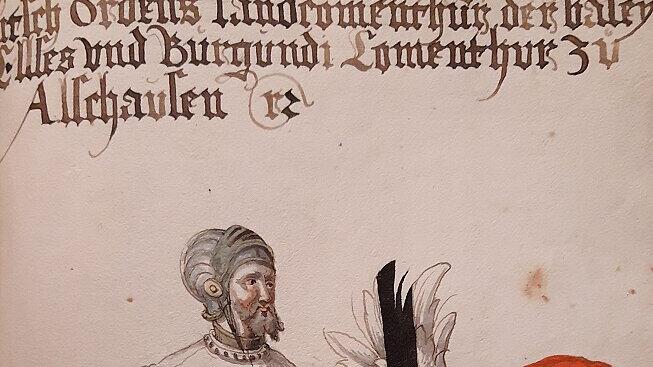 tsch Ordens Landcomenthür der baley
Elses vnd Burgundi Comenthur zu
Allschausen rz